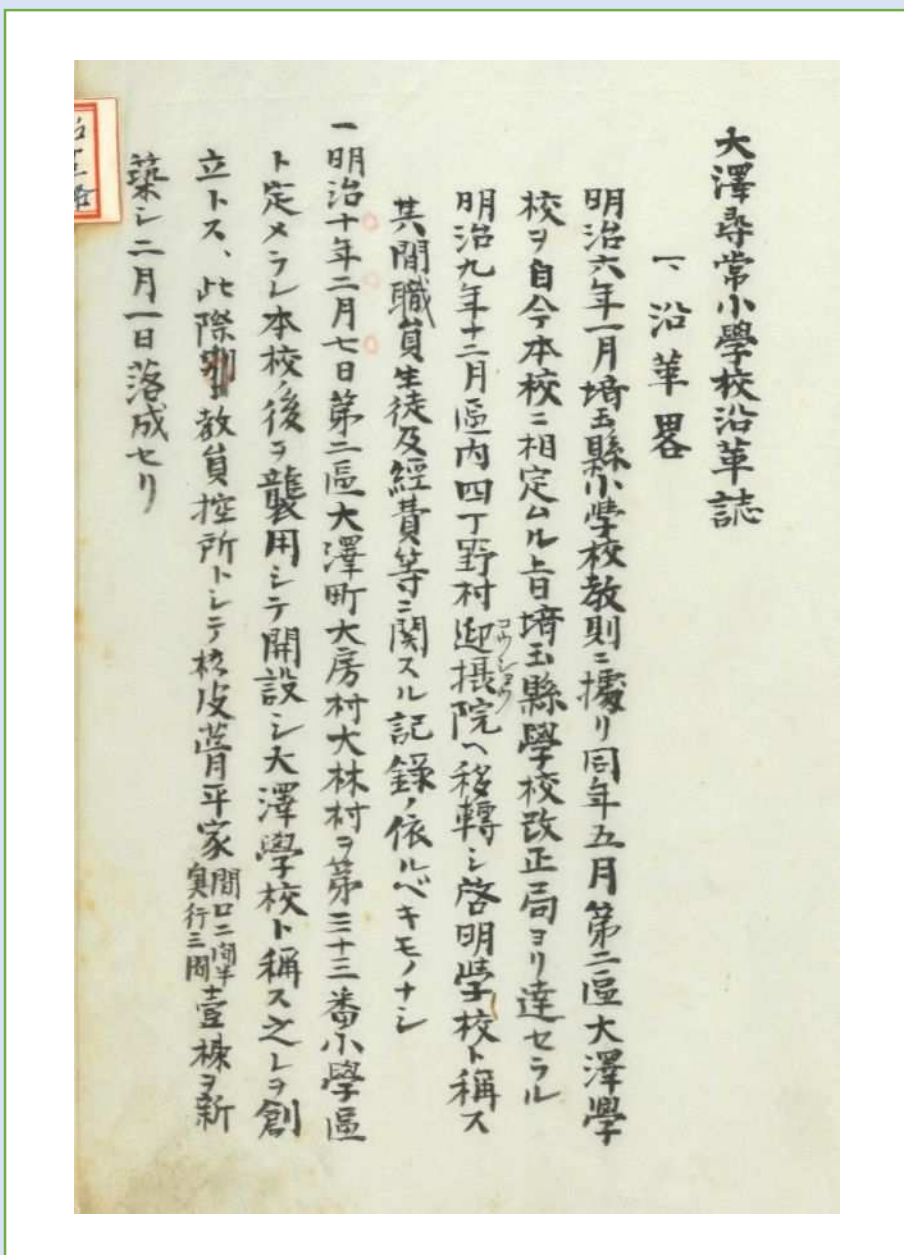 大澤尋常小學校沿革誌
一、沿革畧
明治六年一月埼玉縣小學校教則ニ據リ同年五月第二區大澤學
校ヲ自今本校ニ相定ムル旨埼玉縣學校改正局ヨリ達セラル
明治九年十二月區内四丁野村迎摂院ヘ移轉シ啓明學校ト稱ス
コウショウ
其間職員生徒及經費等ニ関スル記録ノ依ルベキモノナシ
一明治十年二月七日第二區大澤町大房村大林村ヲ第三十三番小學區
ト定メラレ本校ノ後ヲ襲用シテ開設シ大澤學校ト稱ス之レヲ創
立トス、此際別ニ教員控所トシテ杉皮葺平家間口二間半奥行三間壹棟ヲ新
築シ二月一日落成セリ